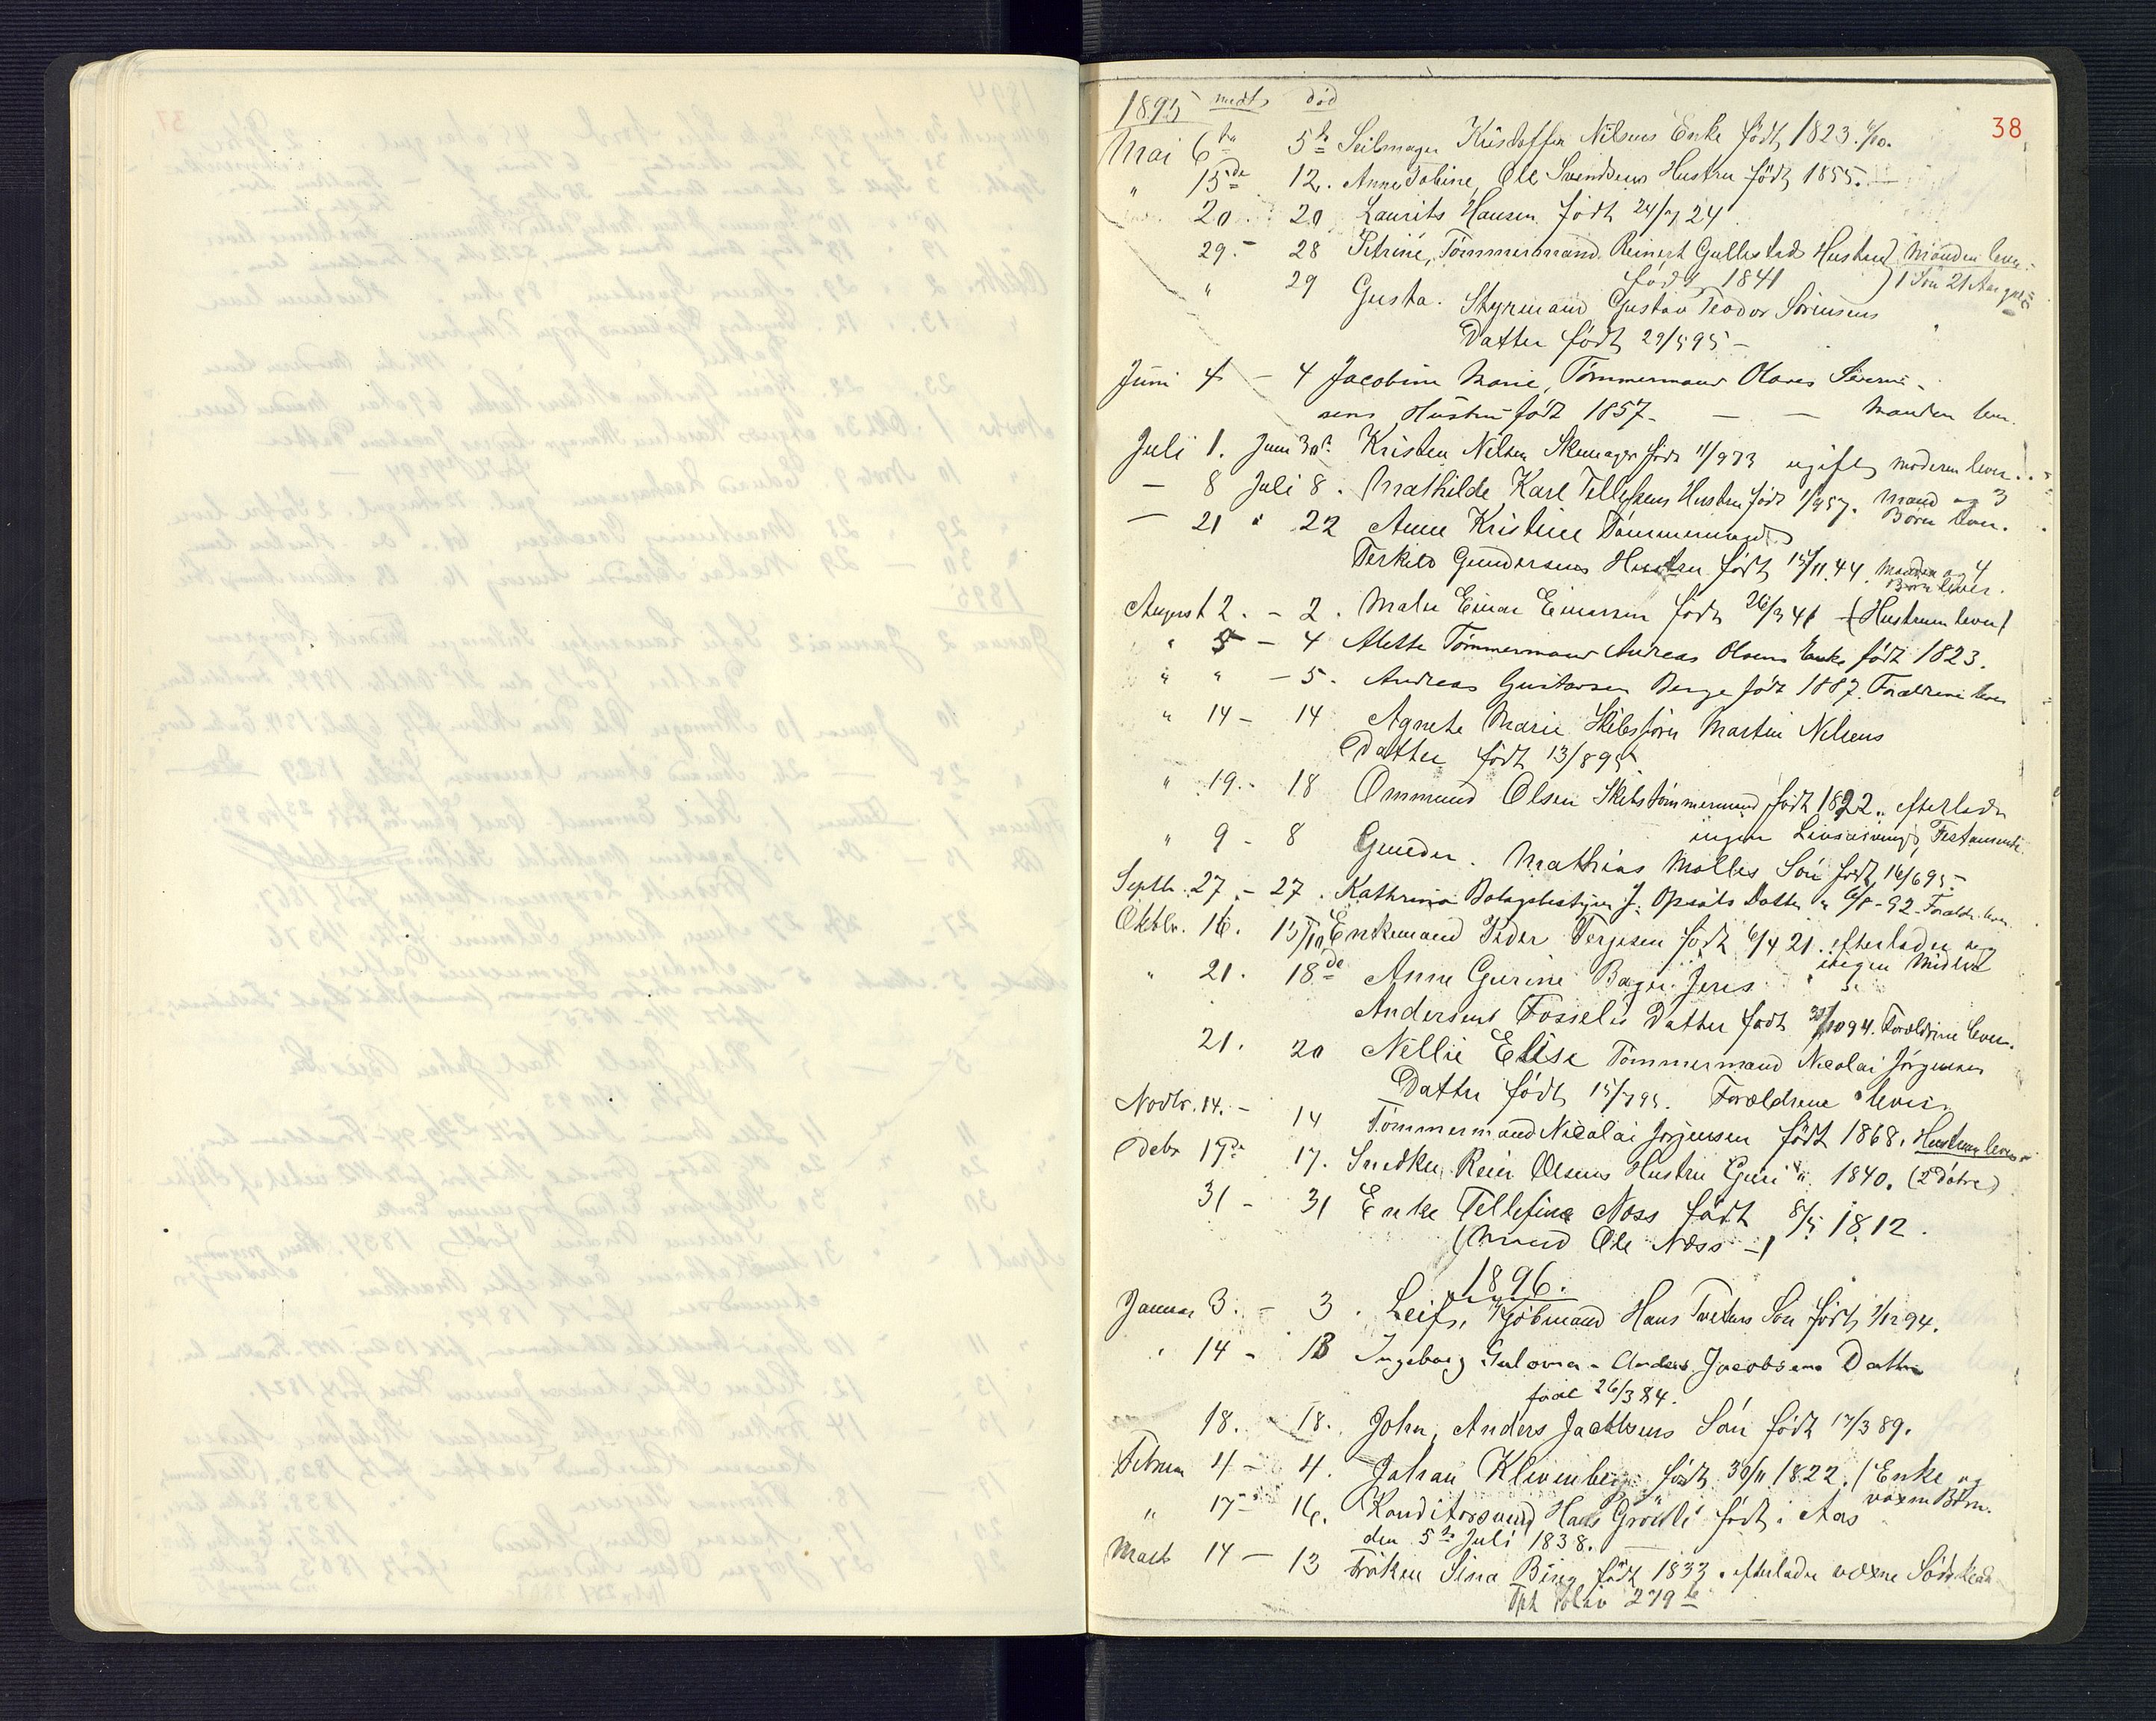 38
1895 meldt død
Mai 6te 5te Seilmager Kristoffer Nilsens Enke født 1823.
" 15de 12. Anne Tobine, Ole Svendsens Hustru født 1855.
20 20 Laurits Hansen født 24/7 24
29. - 28 Petrine, Tømmermand Reinert Gullestads Hustru Manden lever
født 1841 1 Søn 21 Aar gml
" 29 Gusta. Styrmand Gustav Teodor Sørensens
Datter født 29/5 95 -
Juni 4 - 4 Jacobine Marie, Tømmermand Olaves Severin-
sens Hustru født 1857 - - - Manden lever
Juli 1. Juni 30te Kristen Nilsen Skomager født 11/9 73 ugift, moderen lever.
- 8 Juli 8. Mathilde Karl Tellefsens Hustru født 1/9 57. Mand og 3
Børn lever.
- 21 " 22 Anne Kristine Tømmermand
Terkild Gundersens Hustru født 15/11 44. Manden og 4
Børn lever.
August 2. - 2. Maler Einar Einersen født 26/3 41 (Hustruen lever)
" 5 - 4 Alette Tømmermand Andreas Olsens Enke født 1823.
" " - 5. Andreas Gustavsen Berge født 1887. Forældrene lever
" 14 - 14 Agnete Marie Skibsfører Martin Nilsens
Datter født 13/8 95
" 19. - 18 Ommund Olsen Skibstømmermand født 1822. efterlader
ingen Livsarving, Testamente.
" 9 - 8 Gunder. Mathias Molles Søn født 16/6 95. -
Septbr. 27. - 27. Kathrine Bolagsbestyrer J. Opsals Datter " 6/8 - 92 - Forældr. lever
Oktbr. 16. 15/10 Enkemand Peder Terjesen født 6/4 21. efterlader sig
ingen Midler
" 21. 18de Anne Gurine Bager Jens
Andersens Fosselis Datter født 30/10 94. Forældrene lever.
21. 20 Nellie Elise Tømmermand Nicolai Jörgensen
Datter født 15/7 95. Forældrene lever
Novbr. 14. - 14 Tømmermand Nicolai Jörgensen født 1868. Hustruen lever
Debr 17de 17. Snedker Reier Olsens Hustru Guri " 1840. (2 Døtre)
31 - 31 Enke Tellefine Næss født 8/5 1812.
(Mand Ole Næss -)
1896.
Januar 3. - 3. Leif, Kjøbmand Hans Tveitens Søn født 1/12 94.
" 14 - 13 Ingeborg Gulovna - Anders Jacobsens Datter
født 26/3 84.
18. " 18. John, Anders Jacobsens Søn født 17/3 89.
Februar 4 - 4. Johan Klevenberg født 30/11 1822. (Enke og
voxne Børn.
" 17 - 16. Konditorsvend Hans Grødli født i Aas
den 5te Juli 1838.
Marts 14 - 13 Frøken Sina Bing født 1833. efterlader voxne Sødskende
Tph Folio 279